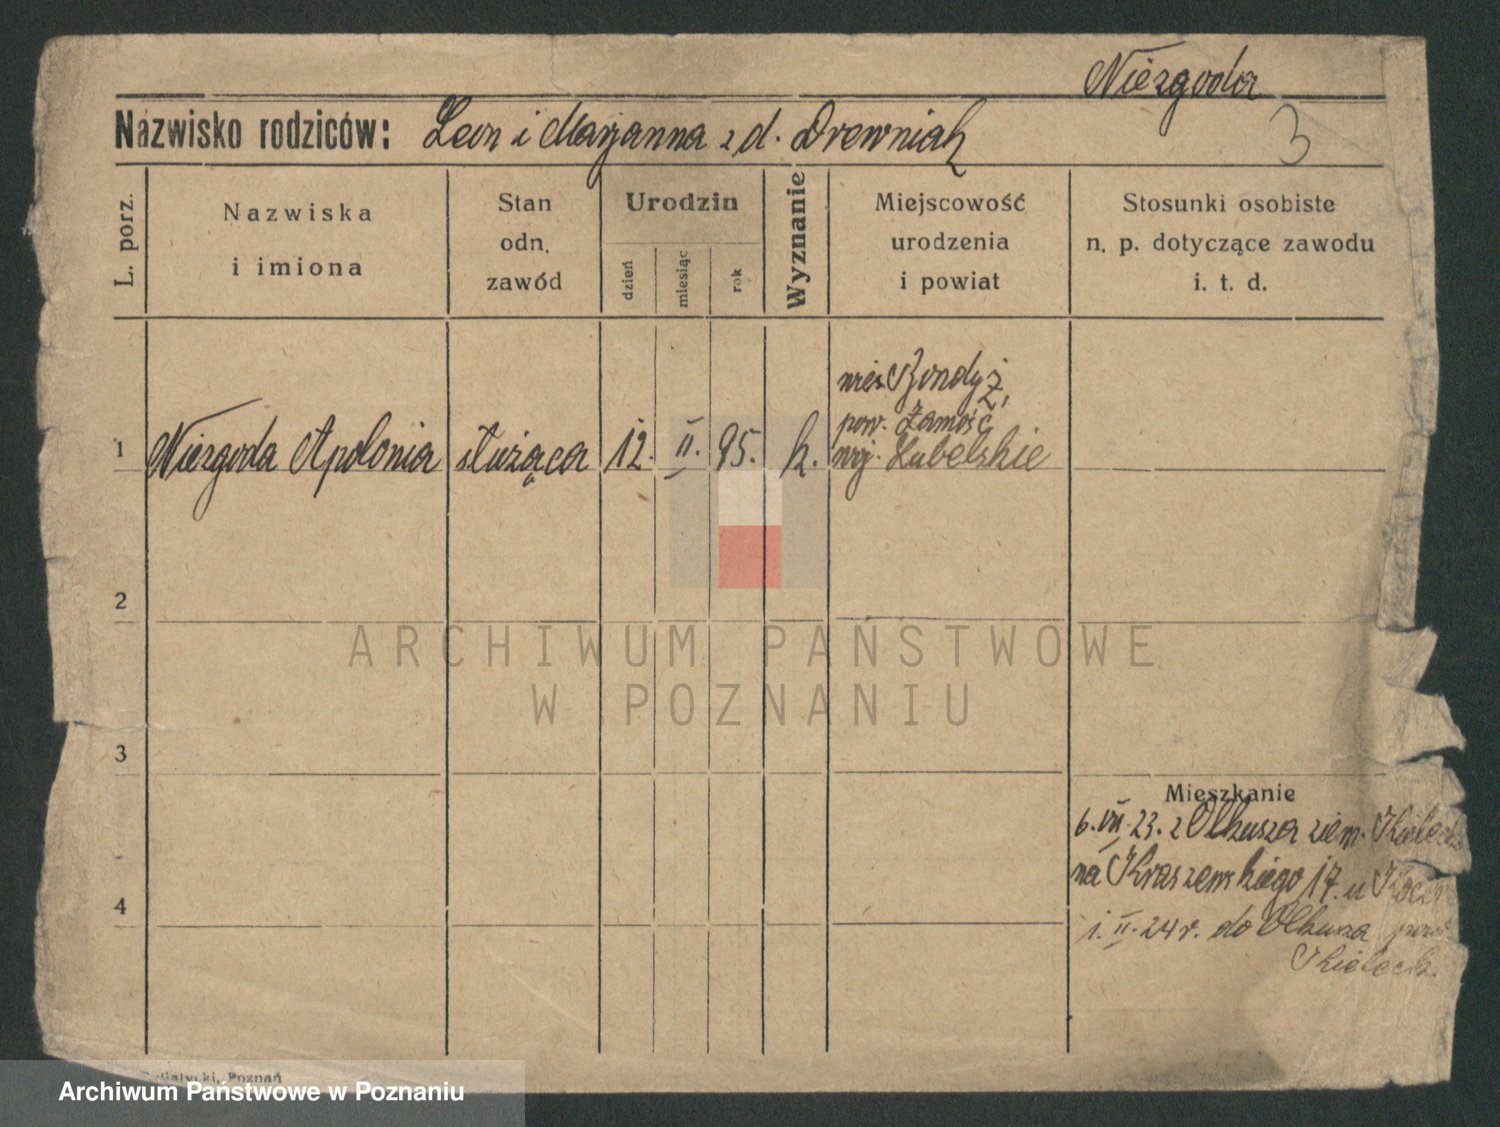 Niezgoda
Nazwisko rodziców: Leon i Marjanna z d. Drewniak
3
L. porz.
Nazwiska
i imiona
Stan
odn.
zawód
Urodzin
dzień
miesiąc
rok
Wyznanie
Miejscowość
urodzenia
i powiat
Stosunki osobiste
n. p. dotyczące zawodu
i. t. d.
1
Niezgoda Apolonia
służąca
12.
II.
95.
k.
wieś Bondyż,
pow. Zamość
woj. Lubelskie
2
ARCHIWUM PAŃSTWOWE
W POZNANIU
3
Mieszkanie
6. VII. 23. z Olkusza ziem.
na Kraszewskiego 17. u
4
1. II. 24 r. do Olkusza pow.
Kieleck.
Poznań
Archiwum Państwowe w Poznaniu